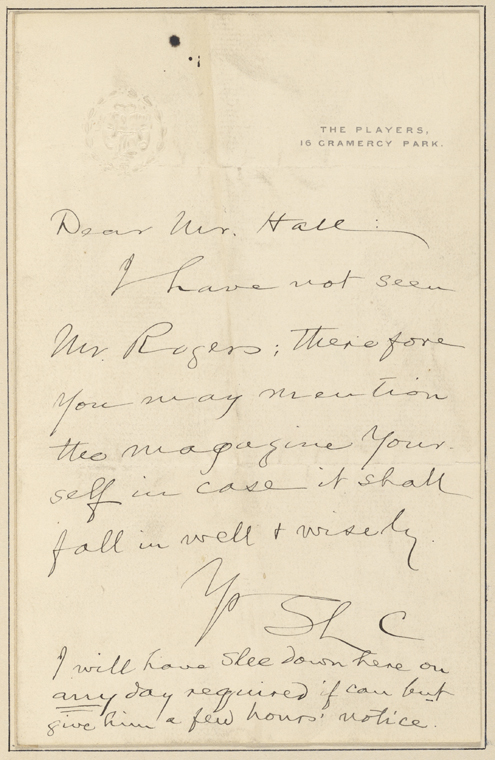 THE PLAYERS,
16 GRAMERCY PARK.
Dear Mr. Hall:
I have not seen
Mr. Rogers; therefore
you may mention
the magazine your-
self in case it shall
fall in well & wisely.
Ys
SLC
I will have Slee down here on
any day required if can but
give him a few hours' notice.